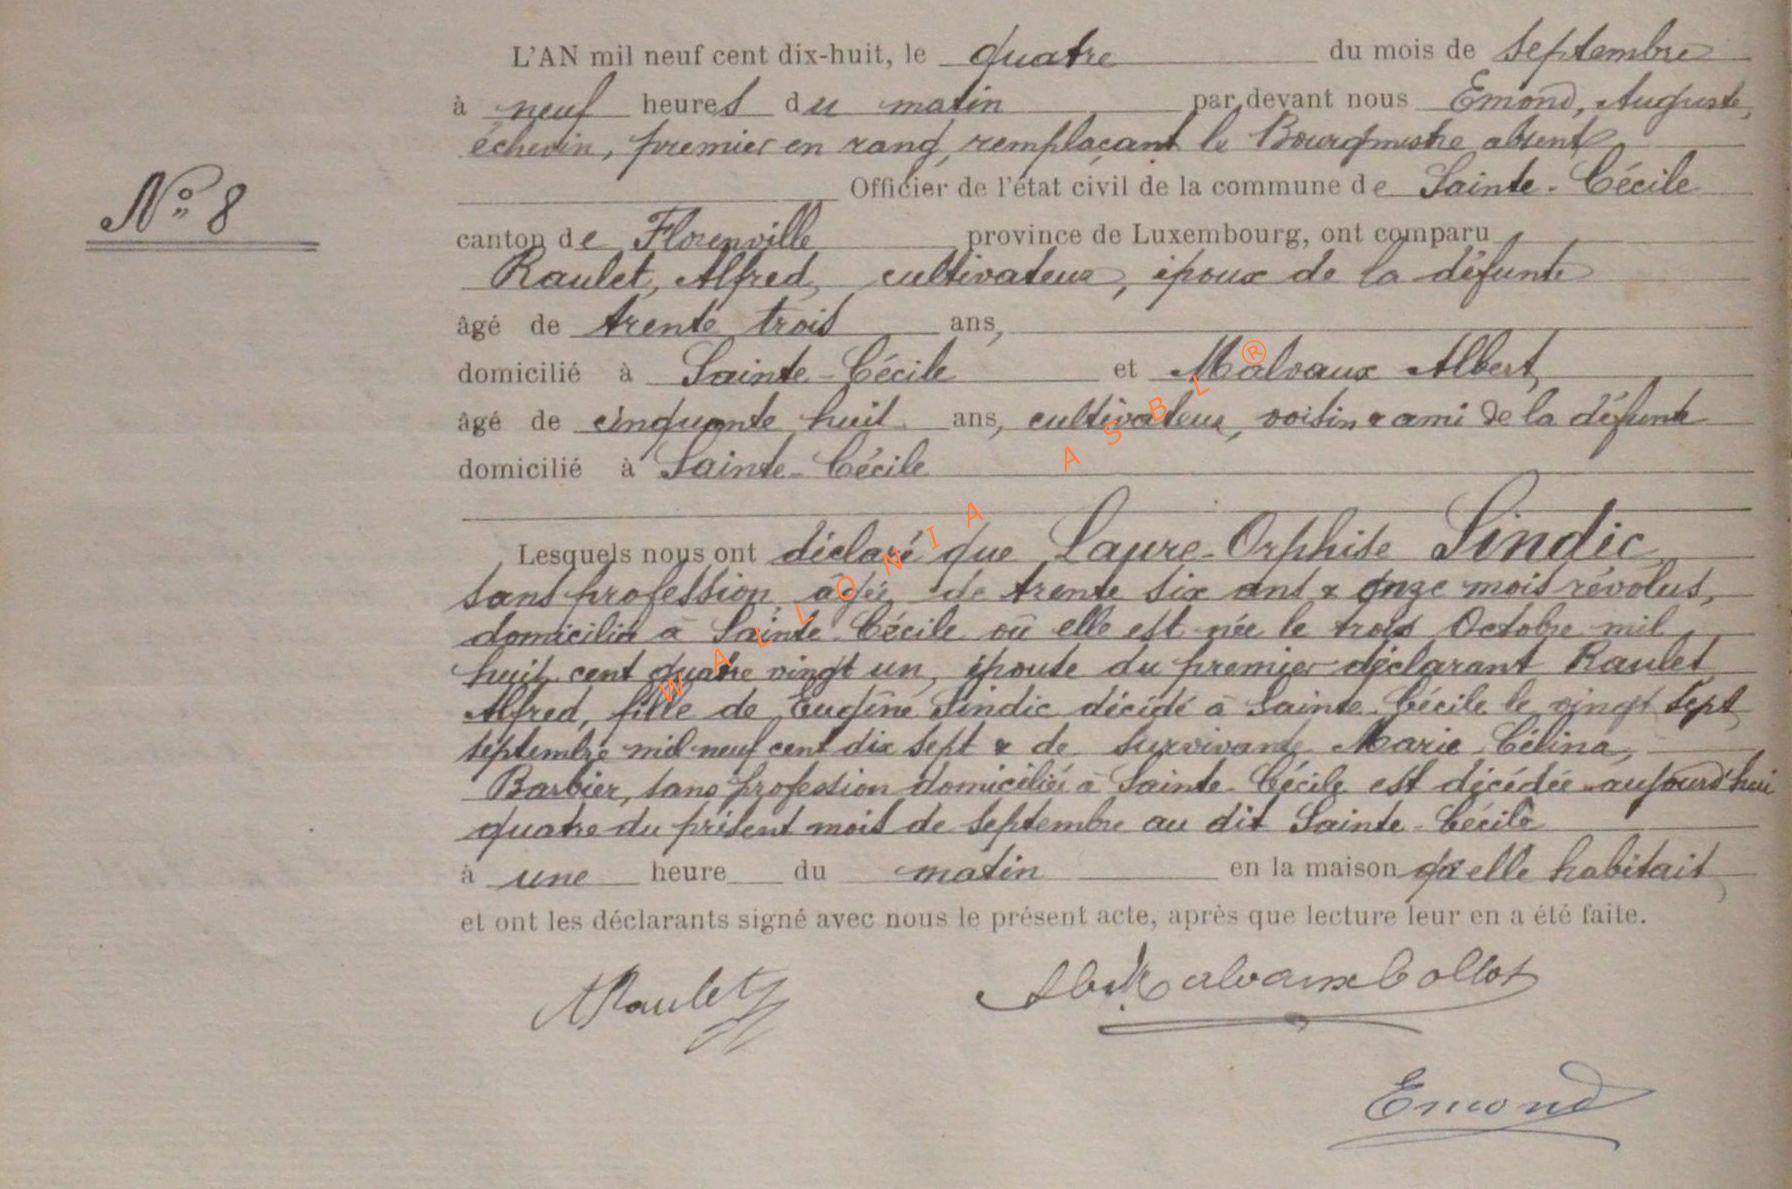 L'AN mil neuf cent dix-huit, le quatre du mois de septembre
à neuf heures du matin par devant nous Emond, Auguste,
échevin, premier en rang, remplaçant le Bourgmestre absent
Officier de l'état civil de la commune de Sainte-Cécile
N° 8
canton de Florenville province de Luxembourg, ont comparu
Raulet, Alfred, cultivateur, époux de la défunte
âgé de trente trois ans,
domicilié à Sainte-Cécile et Malvaux Albert,
âgé de cinquante huit ans, cultivateur, voisin & ami de la défunte
domicilié à Sainte-Cécile
Lesquels nous ont déclaré que Laure-Orphise Sindic,
sans profession, âgée de trente six ans & onze mois révolus,
domiciliée à Sainte-Cécile où elle est née le trois Octobre mil
huit cent quatre vingt un, épouse du premier déclarant Raulet,
Alfred, fille de Eugène Sindic décédé à Sainte-Cécile le vingt sept
septembre mil neuf cent dix sept & de survivante Marie, Célina,
Barbier, sans profession domiciliée à Sainte-Cécile est décédée aujourd'hui
quatre du présent mois de septembre au dit Sainte-Cécile
à une heure du matin en la maison qu'elle habitait,
et ont les déclarants signé avec nous le présent acte, après que lecture leur en a été faite.
ARaulet Alb Malvaux Collot
Emond
WALLONIA ASBL ®